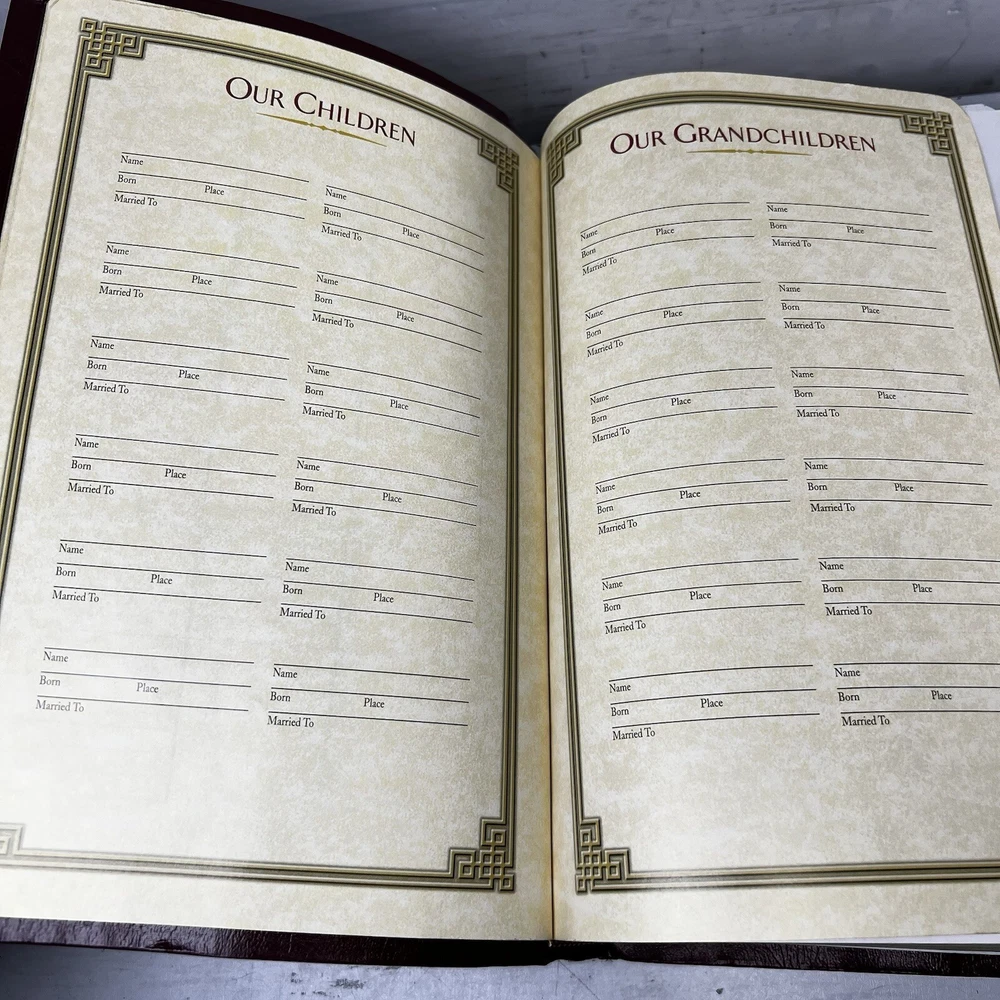 OUR CHILDREN
Name
Born Place
Married To
Name
Born Place
Married To
Name
Born Place
Married To
Name
Born Place
Married To
Name
Born Place
Married To
Name
Born Place
Married To
Name
Born Place
Married To
Name
Born Place
Married To
Name
Born Place
Married To
Name
Born Place
Married To
Name
Born Place
Married To
Name
Born Place
Married To
OUR GRANDCHILDREN
Name
Born Place
Married To
Name
Born Place
Married To
Name
Born Place
Married To
Name
Born Place
Married To
Name
Born Place
Married To
Name
Born Place
Married To
Name
Born Place
Married To
Name
Born Place
Married To
Name
Born Place
Married To
Name
Born Place
Married To
Name
Born Place
Married To
Name
Born Place
Married To